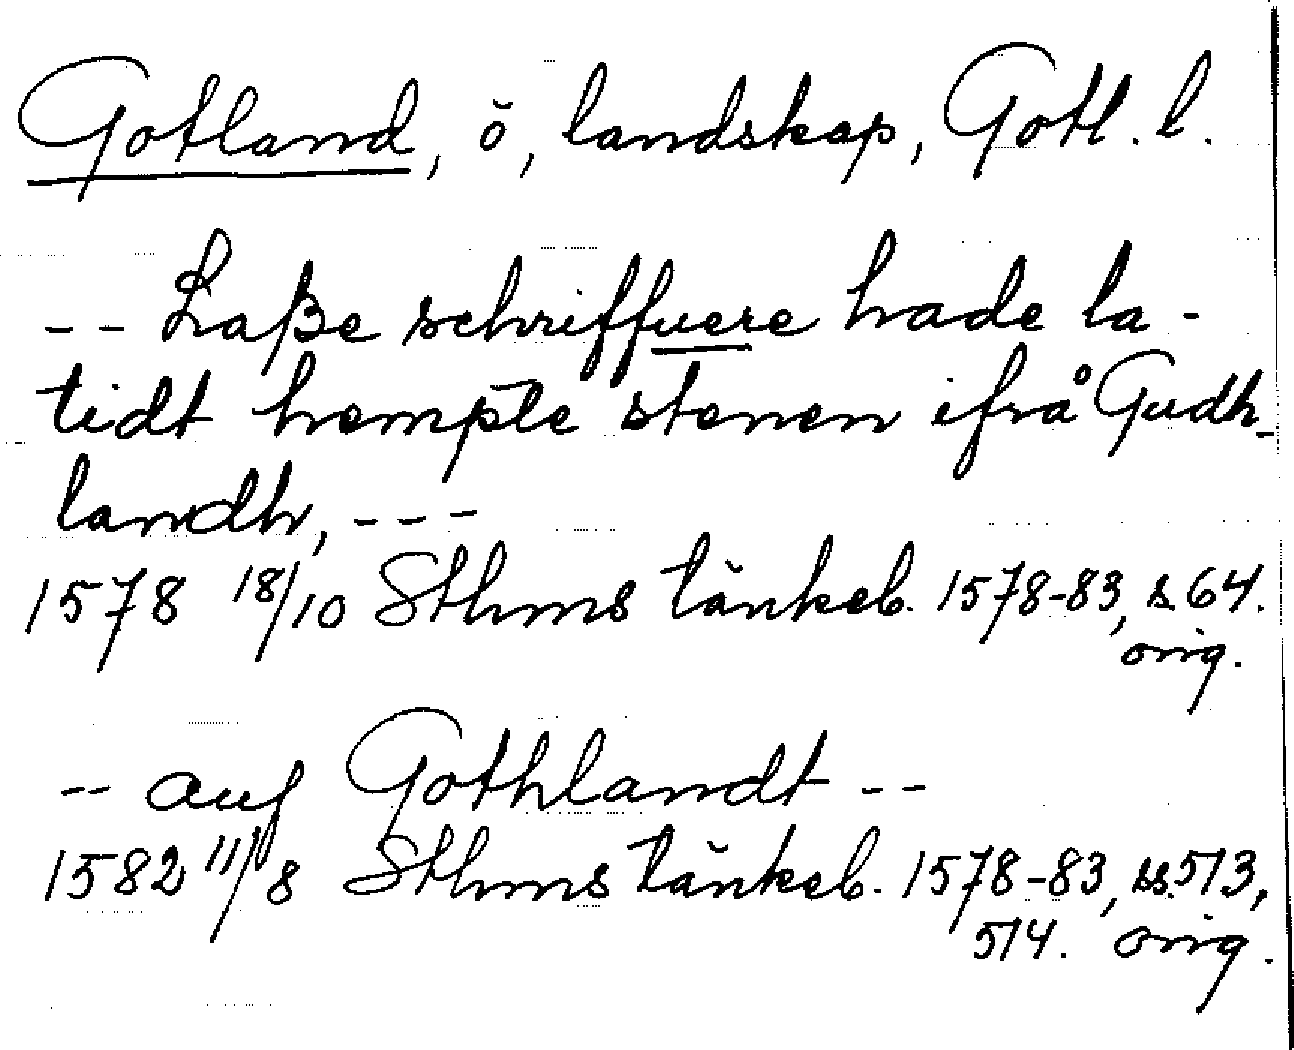 Gotland, ö, landskap, Gotl. l.
-- Laße schriffuere hade la-
tidt hempte stenen ifrå Gudh-
landh, ---
1578 18/10 Sthms tänkeb. 1578-83, s. 64.
orig.
-- auf Gothlandt --
1582 11/8 Sthms tänkeb. 1578-83, ss. 513,
514. orig.